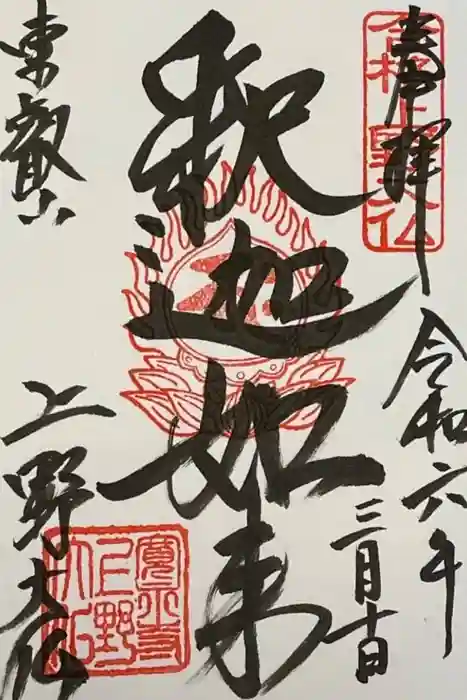 奉拝
令和六年
三月十日
合格上野大仏
釈迦如来
東叡山
上野大仏
寛永寺
上野
大仏